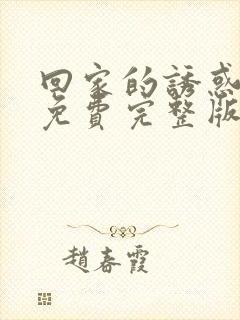 回家的誘惑
免費完整版
趙春霞